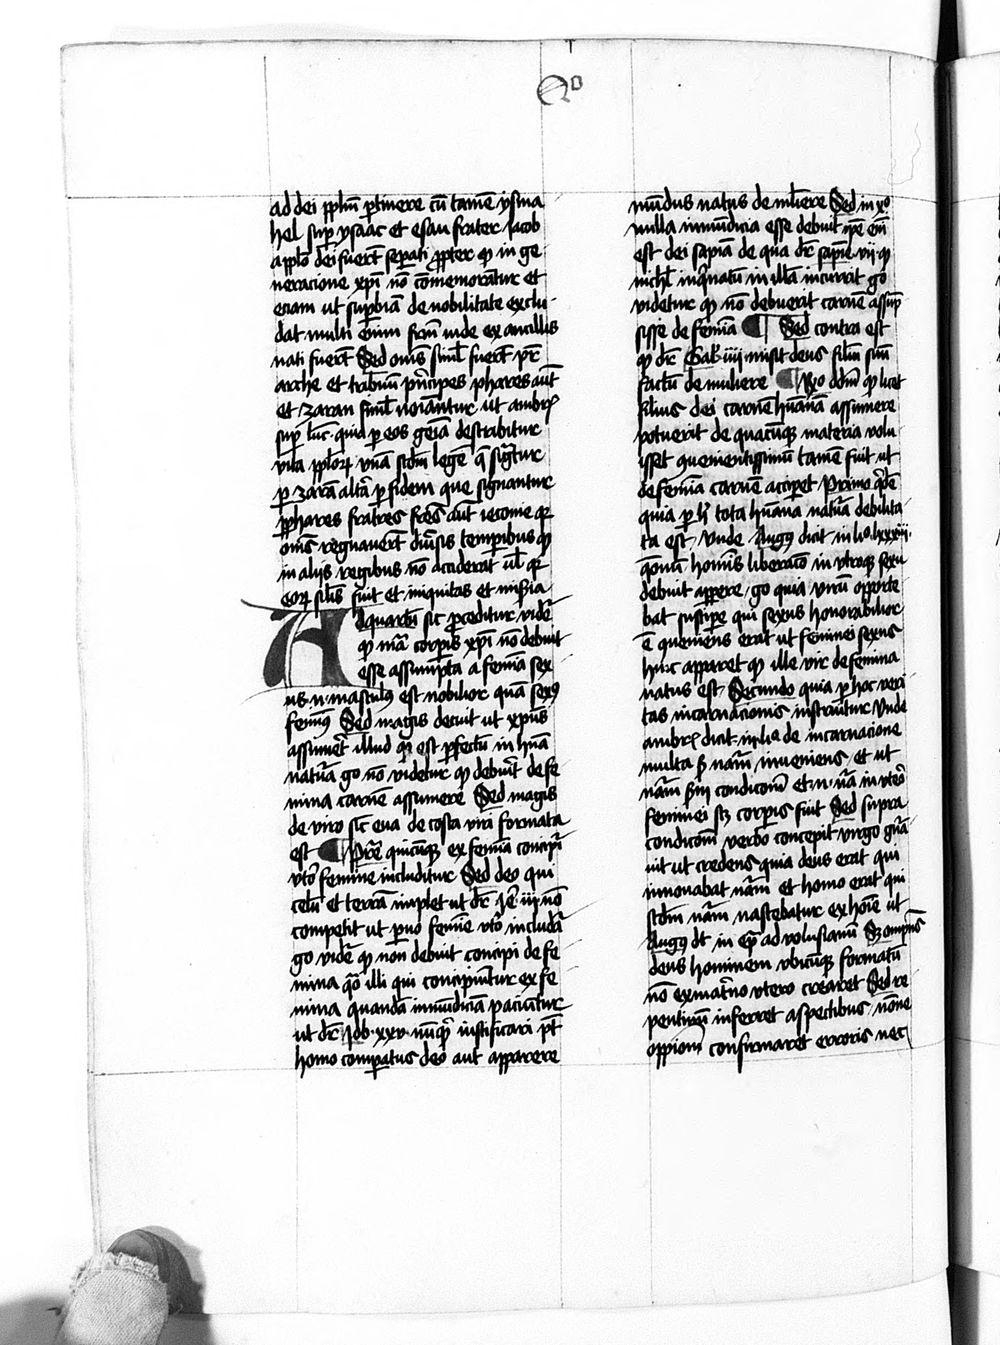 Qo
ad dei pplm ptinere cu tame ysma
hel sup ysaac et esau frater Jacob
applo dei fuert sepati ppter qp in ge
neracione xpi no comemorantur et
eciam ut supbiam de nobilitate exclu
dat multi enim frm inde ex ancillis
nati fuert Sed oms siml fuert pr
arche et tribuum principes phares aut
et zaran siml noiantur ut ambr
sup luc quid p eos gemia describitur
vita pplorum una scdm lege q signatur
p zaram altra p fidem que signantur
pphares fratres fres aut iecome qr
oms regnauert diuisis temporibus qp
in alijs regibus no acciderat ul qr
eorum silis fuit et iniquitas et miseria
Ad quartum sic proceditur videtur
qp ma corpis xpi no debuit
esse assumpta a femina sex
us n masculus est nobilior quam sexus
femineus Sed magis decuit ut xpus
assumeret illud qr est pfectum in huana
natura go no videtur qp debuerit de fe
mina carne assumere Sed magis
de viro sic eua de costa viri formata
est Pre quicumque ex femina concipitur
utero femine includitur Sed deo qui
celum et terram implet ut dr Jer iij no
competit ut paruo femine utero includatur
go videtur qp non debuit concipi de fe
mina quo illi qui concipiuntur ex fe
mina quandam inmundiciam paciuntur
ut dr Job xxv nuquid iustificari pt
homo comparatus deo aut apparere
mundus natus de muliere Sed in xpo
nulla inmundicia esse debuit ipse enim
est dei sapia de qua dr sapie vij qp
nichil inquinatum in illam incurrit go
videtur qp no debuerit carne assup
sisse de femina Sed contra est
qp dr Gal iiij misit deus filium suum
factum de muliere Rndo ddm qp licet
filius dei carne huana assumere
potuerit de quacumque materia volu
isset quementissimum tamen fuit ut
de femina carne acciperet Primo quidem
quia p hoc tota huana natura debilita
ta est Unde Augus dicit in lio lxxxiij
qonum hominis liberatio in utroque sexu
debuit apparere go quia virum opporte
bat suscipere qui sexus honorabilior
est queniens erat ut feminei sexus
hinc appareret qp ille vir de femina
natus est Secundo quia p hoc veri
tas incarnacionis instruitur Unde
ambr dicit in lio de incarnacione
multa secundum naturam inueniens et ut
naturam secundum condicionem etenim in utero
feminei scilicet corporis fuit Sed supra
condicionem verbo concepit virgo genu
it ut credens quia deus erat qui
innouabat naturam et homo erat qui
scdm naturam nascebatur ex homine ut
Augus dt in epistola ad volusianum Si omnipotens
deus hominem ubicumque formatum
no ex materno utero crearet Sed re
pentinum inferret aspectibus nonne
oppionem confirmaret erroris nec